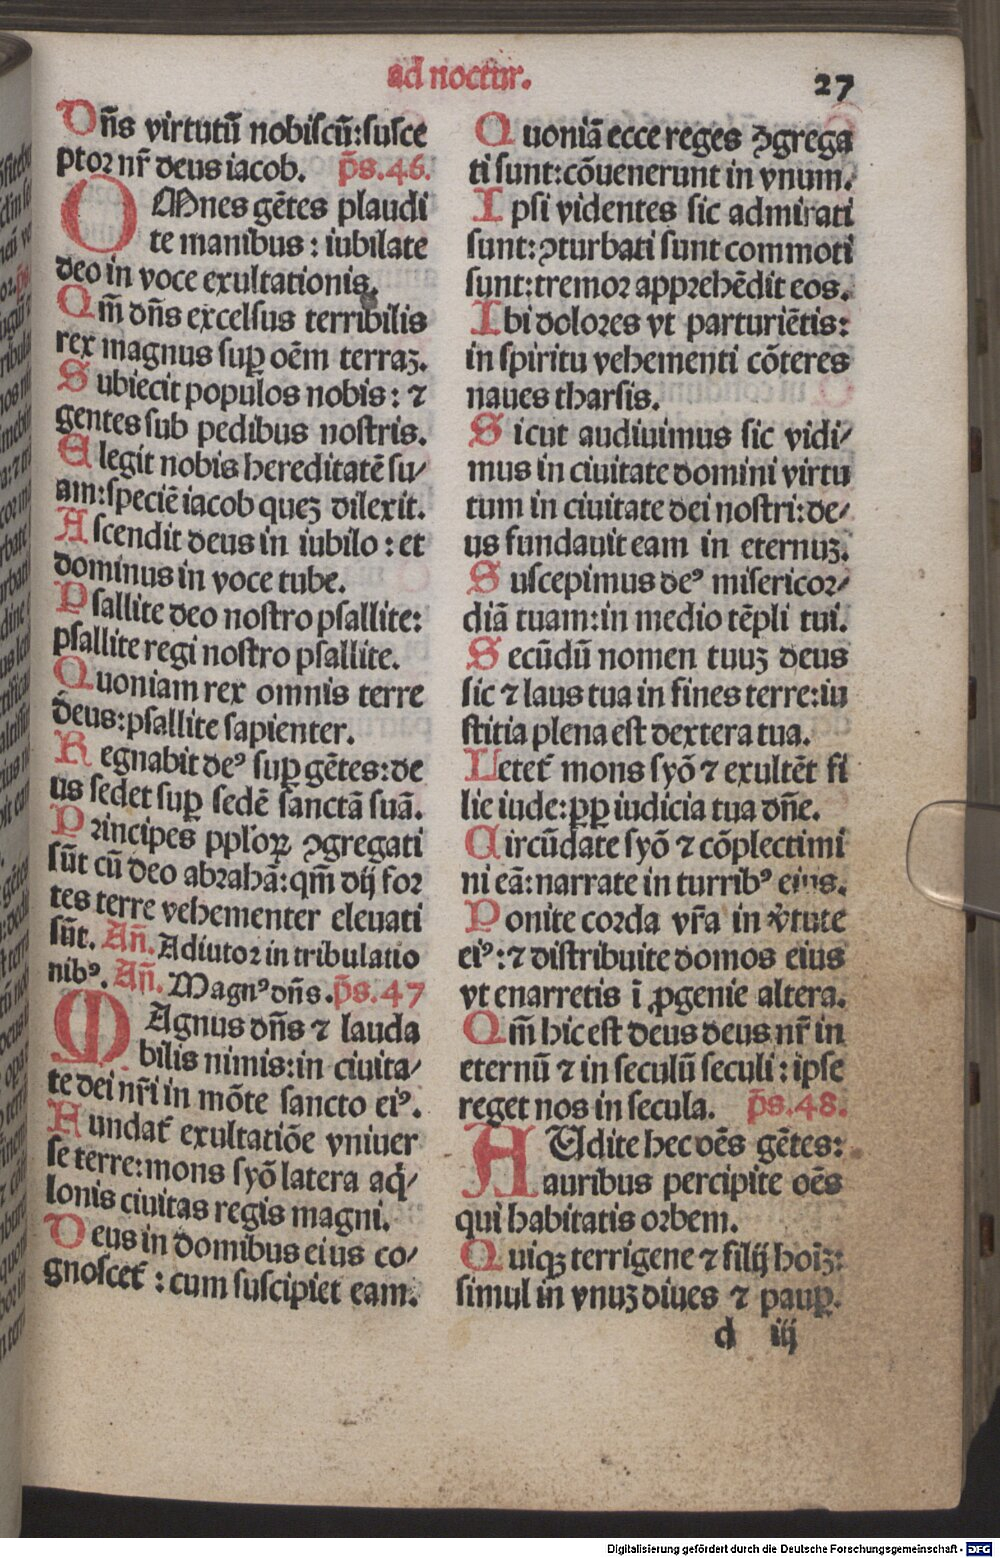 ad noctur.
27
Dñs virtutū nobiscū:susce
ptor nr̄ deus iacob. p̄s.46.
OMnes gētes plaudi
te manibus : iubilate
deo in voce exultationis.
Qm̄ dñs excelsus terribilis
rex magnus suꝑ oēm terraꝫ.
Subiecit populos nobis : ⁊
gentes sub pedibus nostris.
Elegit nobis hereditatē su⸗
am:speciē iacob queꝫ dilexit.
Ascendit deus in iubilo : et
dominus in voce tube.
Psallite deo nostro psallite:
psallite regi nostro psallite.
Quoniam rex omnis terre
deus:psallite sapienter.
Regnabit deꝰ suꝑ gētes:de
us sedet suꝑ sedē sanctā suā.
Principes pploꝝ ꝯgregati
sūt cū deo abrahā:qm̄ dij for
tes terre vehementer eleuati
sūt. An̄. Adiutor in tribulatio
nibꝰ. An̄. Magnꝰ dñs. p̄s.47
MAgnus dñs ⁊ lauda
bilis nimis:in ciuita⸗
te dei nr̄i in mōte sancto eiꝰ.
Fundat᷑ exultatiōe vniuer
se terre:mons syō latera aq̇⸗
lonis ciuitas regis magni.
Deus in domibus eius co⸗
gnoscet᷑ : cum suscipiet eam.
Quoniā ecce reges ꝯgrega
ti sunt:cōuenerunt in vnum.
Ipsi videntes sic admirati
sunt:ꝯturbati sunt commoti
sunt:tremor apprehēdit eos.
Ibi dolores vt parturiētis:
in spiritu vehementi cōteres
naues tharsis.
Sicut audiuimus sic vidi⸗
mus in ciuitate domini virtu
tum in ciuitate dei nostri:de⸗
us fundauit eam in eternuꝫ.
Suscepimus deꝰ misericor⸗
diā tuam:in medio tēpli tui.
Secūdū nomen tuuꝫ deus
sic ⁊ laus tua in fines terre:iu
stitia plena est dextera tua.
Letet᷑ mons syō ⁊ exultēt fi
lie iude:ꝓꝑ iudicia tua dñe.
Circūdate syō ⁊ cōplectimi
ni eā:narrate in turribꝰ eius.
Ponite corda vr̄a in v̓tute
eiꝰ:⁊ distribuite domos eius
vt enarretis ī ꝓgenie altera.
Qm̄ hic est deus deus nr̄ in
eternū ⁊ in seculū seculi : ipse
reget nos in secula. p̄s.48.
AUdite hec oēs gētes:
auribus percipite oēs
qui habitatis orbem.
Quiqꝫ terrigene ⁊ filij hoīꝫ:
simul in vnuꝫ diues ⁊ pauꝑ.
d iij
Digitalisierung gefördert durch die Deutsche Forschungsgemeinschaft - DFG